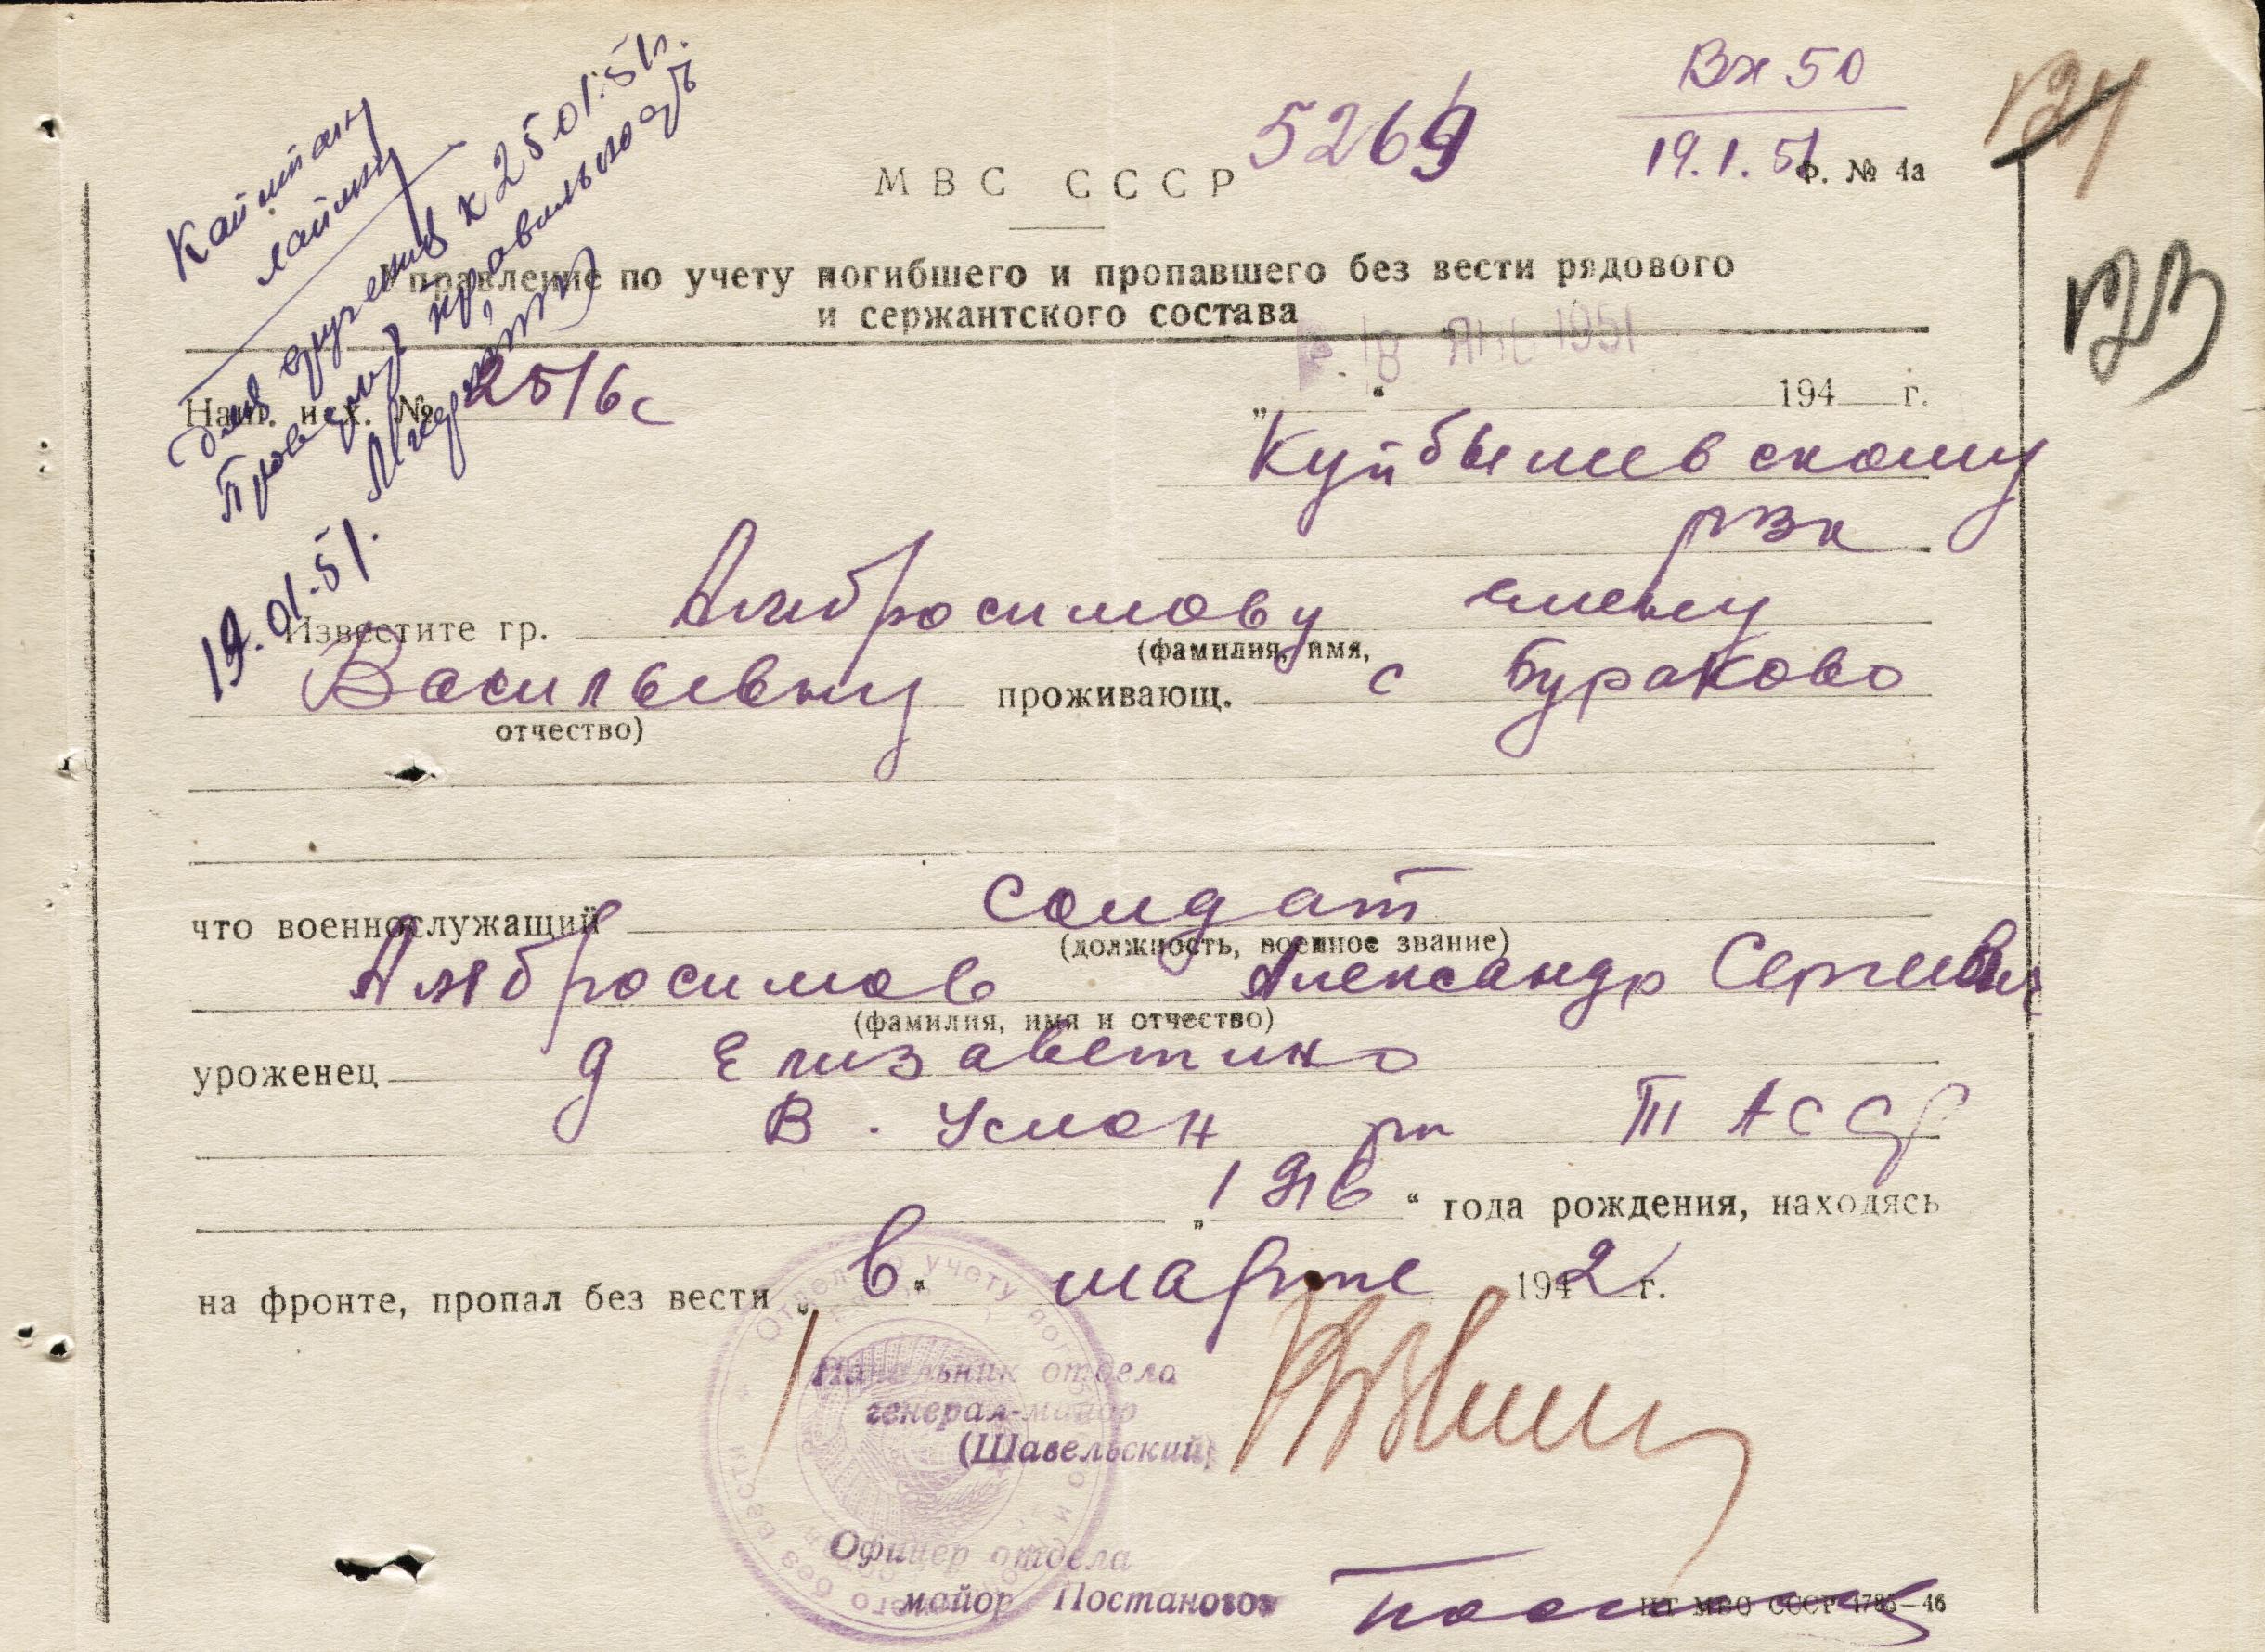 Вх 50
19.1.51
124
123
5269
МВС СССР
Ф. № 4а
Управление по учету погибшего и пропавшего без вести рядового
и сержантского состава
Капитану
для вручения к 25.01.51г.
19.01.51.
18 ЯНВ 1951
Наш. исх. № 2516с
„ “ 194 г.
Куйбышевскому
рвк
Известите гр. Амбросимову Елену
(фамилия, имя,
Васильевну проживающ. с Бураково
отчество)
что военнослужащий солдат
(должность, военное звание)
Амбросимов Александр Сергеевич
(фамилия, имя и отчество)
уроженец д Елизаветино
В. Услон рн ТАССР
„ 1916 “ года рождения, находясь
на фронте, пропал без вести „ в “ марте 1942 г.
Начальник отдела
генерал-майор
(Шавельский)
Офицер отдела
майор Постаногов
ЦТ МВО СССР 1785—46